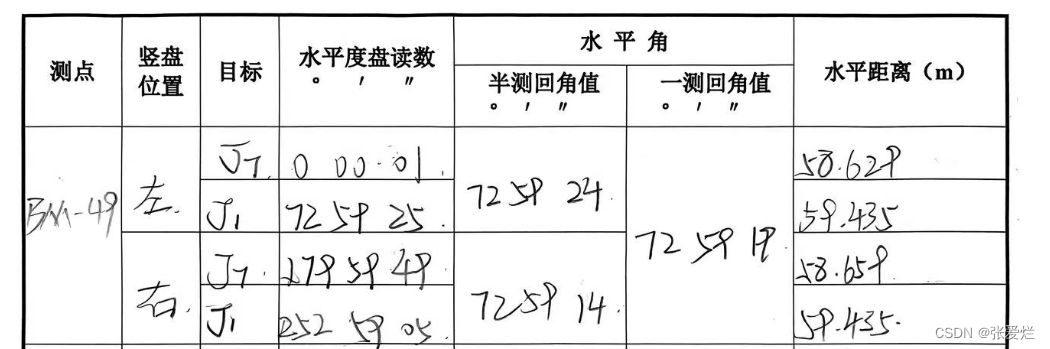 测点 竖盘位置 目标 水平度盘读数 ° ′ ″ 水平角 水平距离（m）
半测回角值 ° ′ ″ 一测回角值 ° ′ ″
BM-49 左. J7. 0 00 01. 72 59 24. 72 59 19. 58.629
J1 72 59 25. 59.435
右. J7. 179 59 49 72 59 14. 58.659.
J1 252 59 05. 59.435.
CSDN @张爱烂